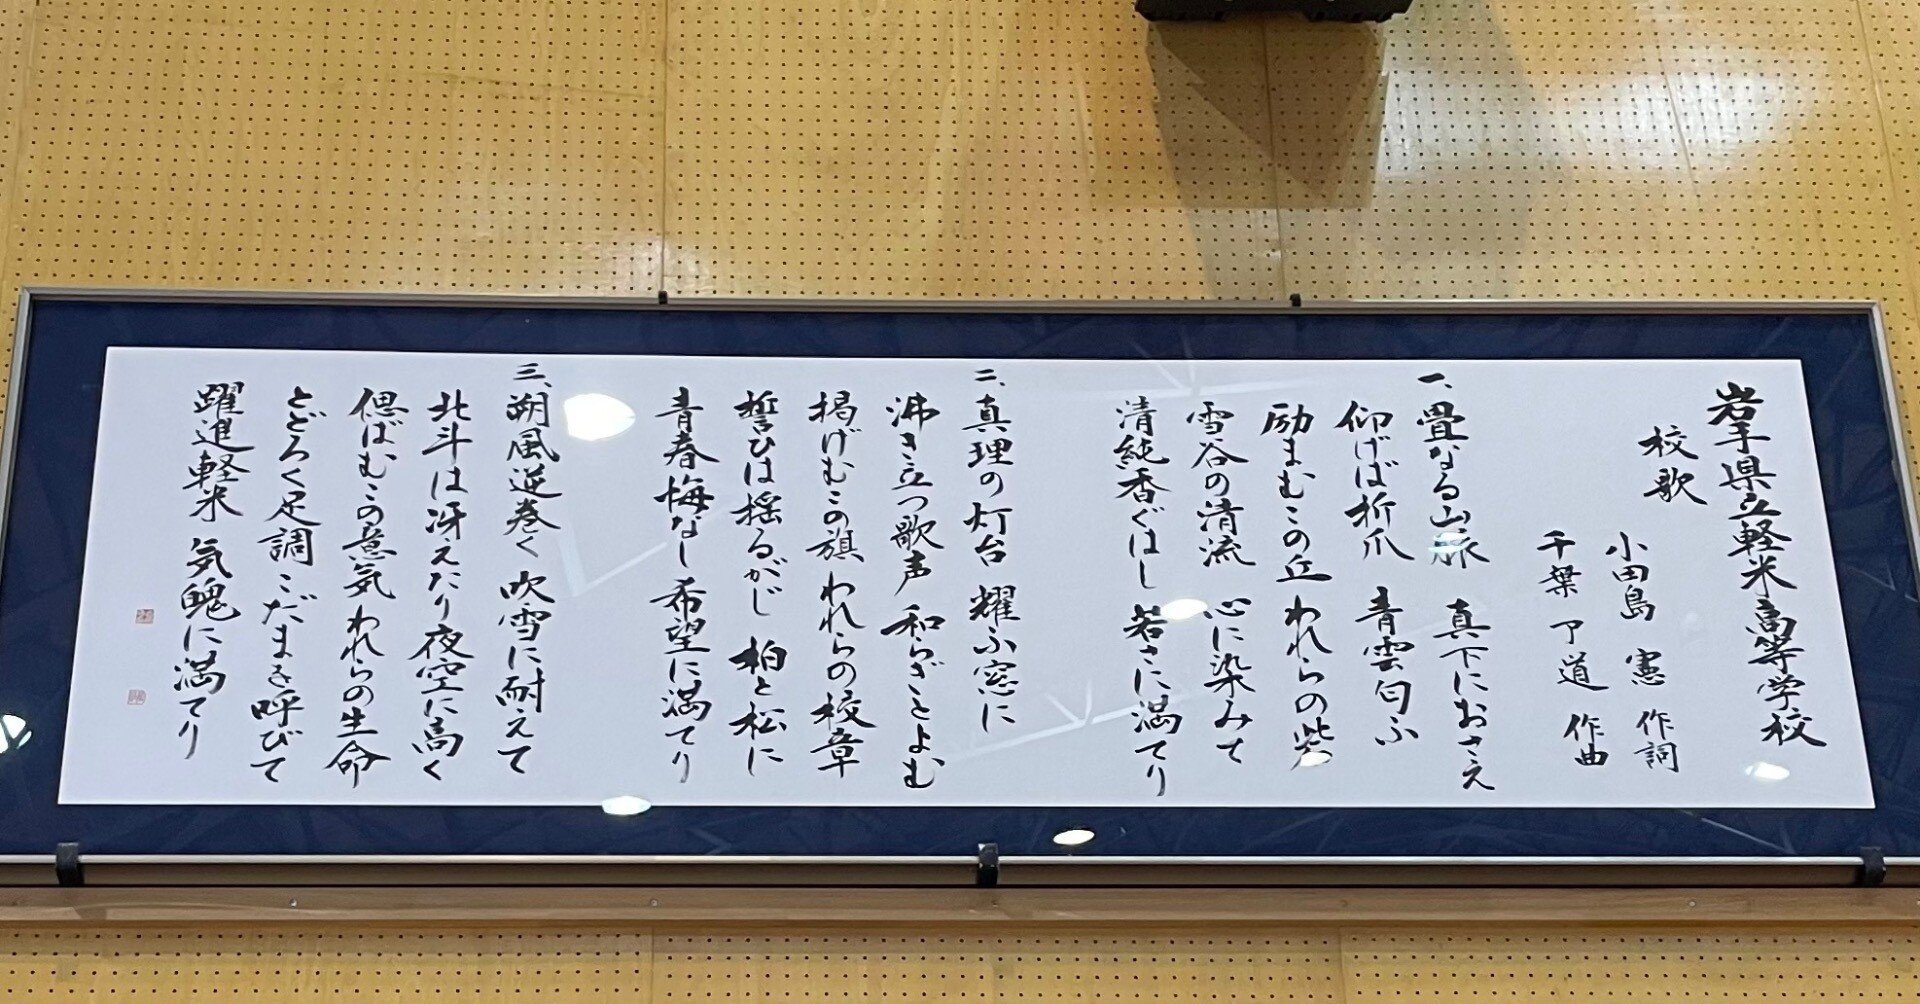 岩手県立軽米高等学校
校歌
小田島 憲 作詞
千葉 了道 作曲
一、畳なる山脈 真下におさえ
仰げば折爪 青雲匂ふ
励まむこの丘 われらの柴
雪谷の清流 心に染みて
清純香ぐはし 若さに満てり
二、真理の灯台 耀ふ窓に
沸き立つ歌声 和らぎとよむ
掲げむこの旗 われらの校章
誓ひは揺るがじ 柏と松に
青春悔なし 希望に満てり
三、朔風逆巻く 吹雪に耐えて
北斗は冴えたり 夜空に高く
偲ばむこの意気 われらの生命
とどろく足調 こだまを呼びて
躍進軽米 気魄に満てり